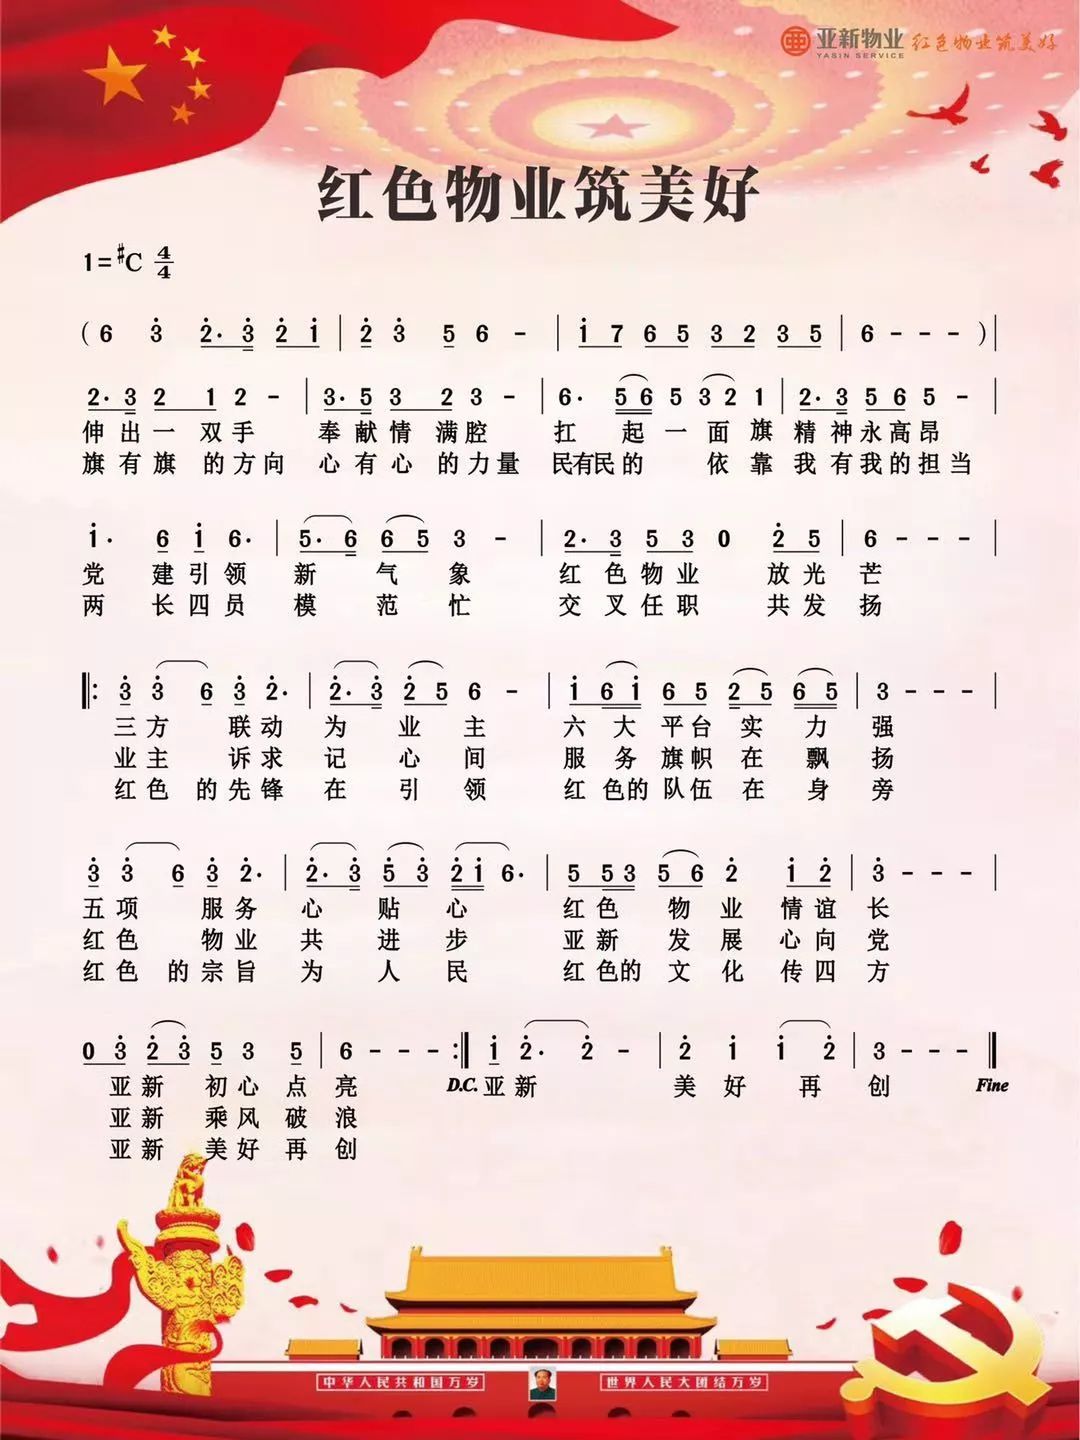 亚新物业 红色物业筑美好
YASIN SERVICE
红色物业筑美好
1=#C 4/4
( 6 3̇ 2̇· 3̇ 2̇ 1̇ | 2̇ 3̇ 5 6 - | 1̇ 7 6 5 3 2 3 5 | 6 - - - ) |
2· 3 2 1 2 - | 3· 5 3 2 3 - | 6· 5 6 5 3 2 1 | 2· 3 5 6 5 - |
伸出一双手 奉献情满腔 扛起一面旗 精神永高昂
旗有旗的方向 心有心的力量 民有民的依靠 我有我的担当
1̇· 6 1̇ 6· | 5· 6 6 5 3 - | 2· 3 5 3 0 2̇ 5 | 6 - - - |
党建引领新气象 红色物业放光芒
两长四员模范忙 交叉任职共发扬
‖: 3̇ 3̇ 6 3̇ 2̇· | 2̇· 3̇ 2̇ 5 6 - | 1̇ 6 1̇ 6 5 2 5 6 5 | 3 - - - |
三方联动为业主 六大平台实力强
业主诉求记心间 服务旗帜在飘扬
红色的先锋在引领 红色的队伍在身旁
3̇ 3̇ 6 3̇ 2̇· | 2̇· 3̇ 5̇ 3̇ 2̇ 1̇ 6· | 5 5 3 5 6 2̇ 1̇ 2̇ | 3̇ - - - |
五项服务心贴心 红色物业情谊长
红色物业共进步 亚新发展心向党
红色的宗旨为人民 红色的文化传四方
0 3̇ 2̇ 3̇ 5 3 5 | 6 - - - :‖ 1̇ 2̇· 2̇ - | 2̇ 1̇ 1̇ 2̇ | 3 - - - ‖
亚新初心点亮 D.C. 亚新 美好再创 Fine
亚新乘风破浪
亚新美好再创
中华人民共和国万岁 世界人民大团结万岁